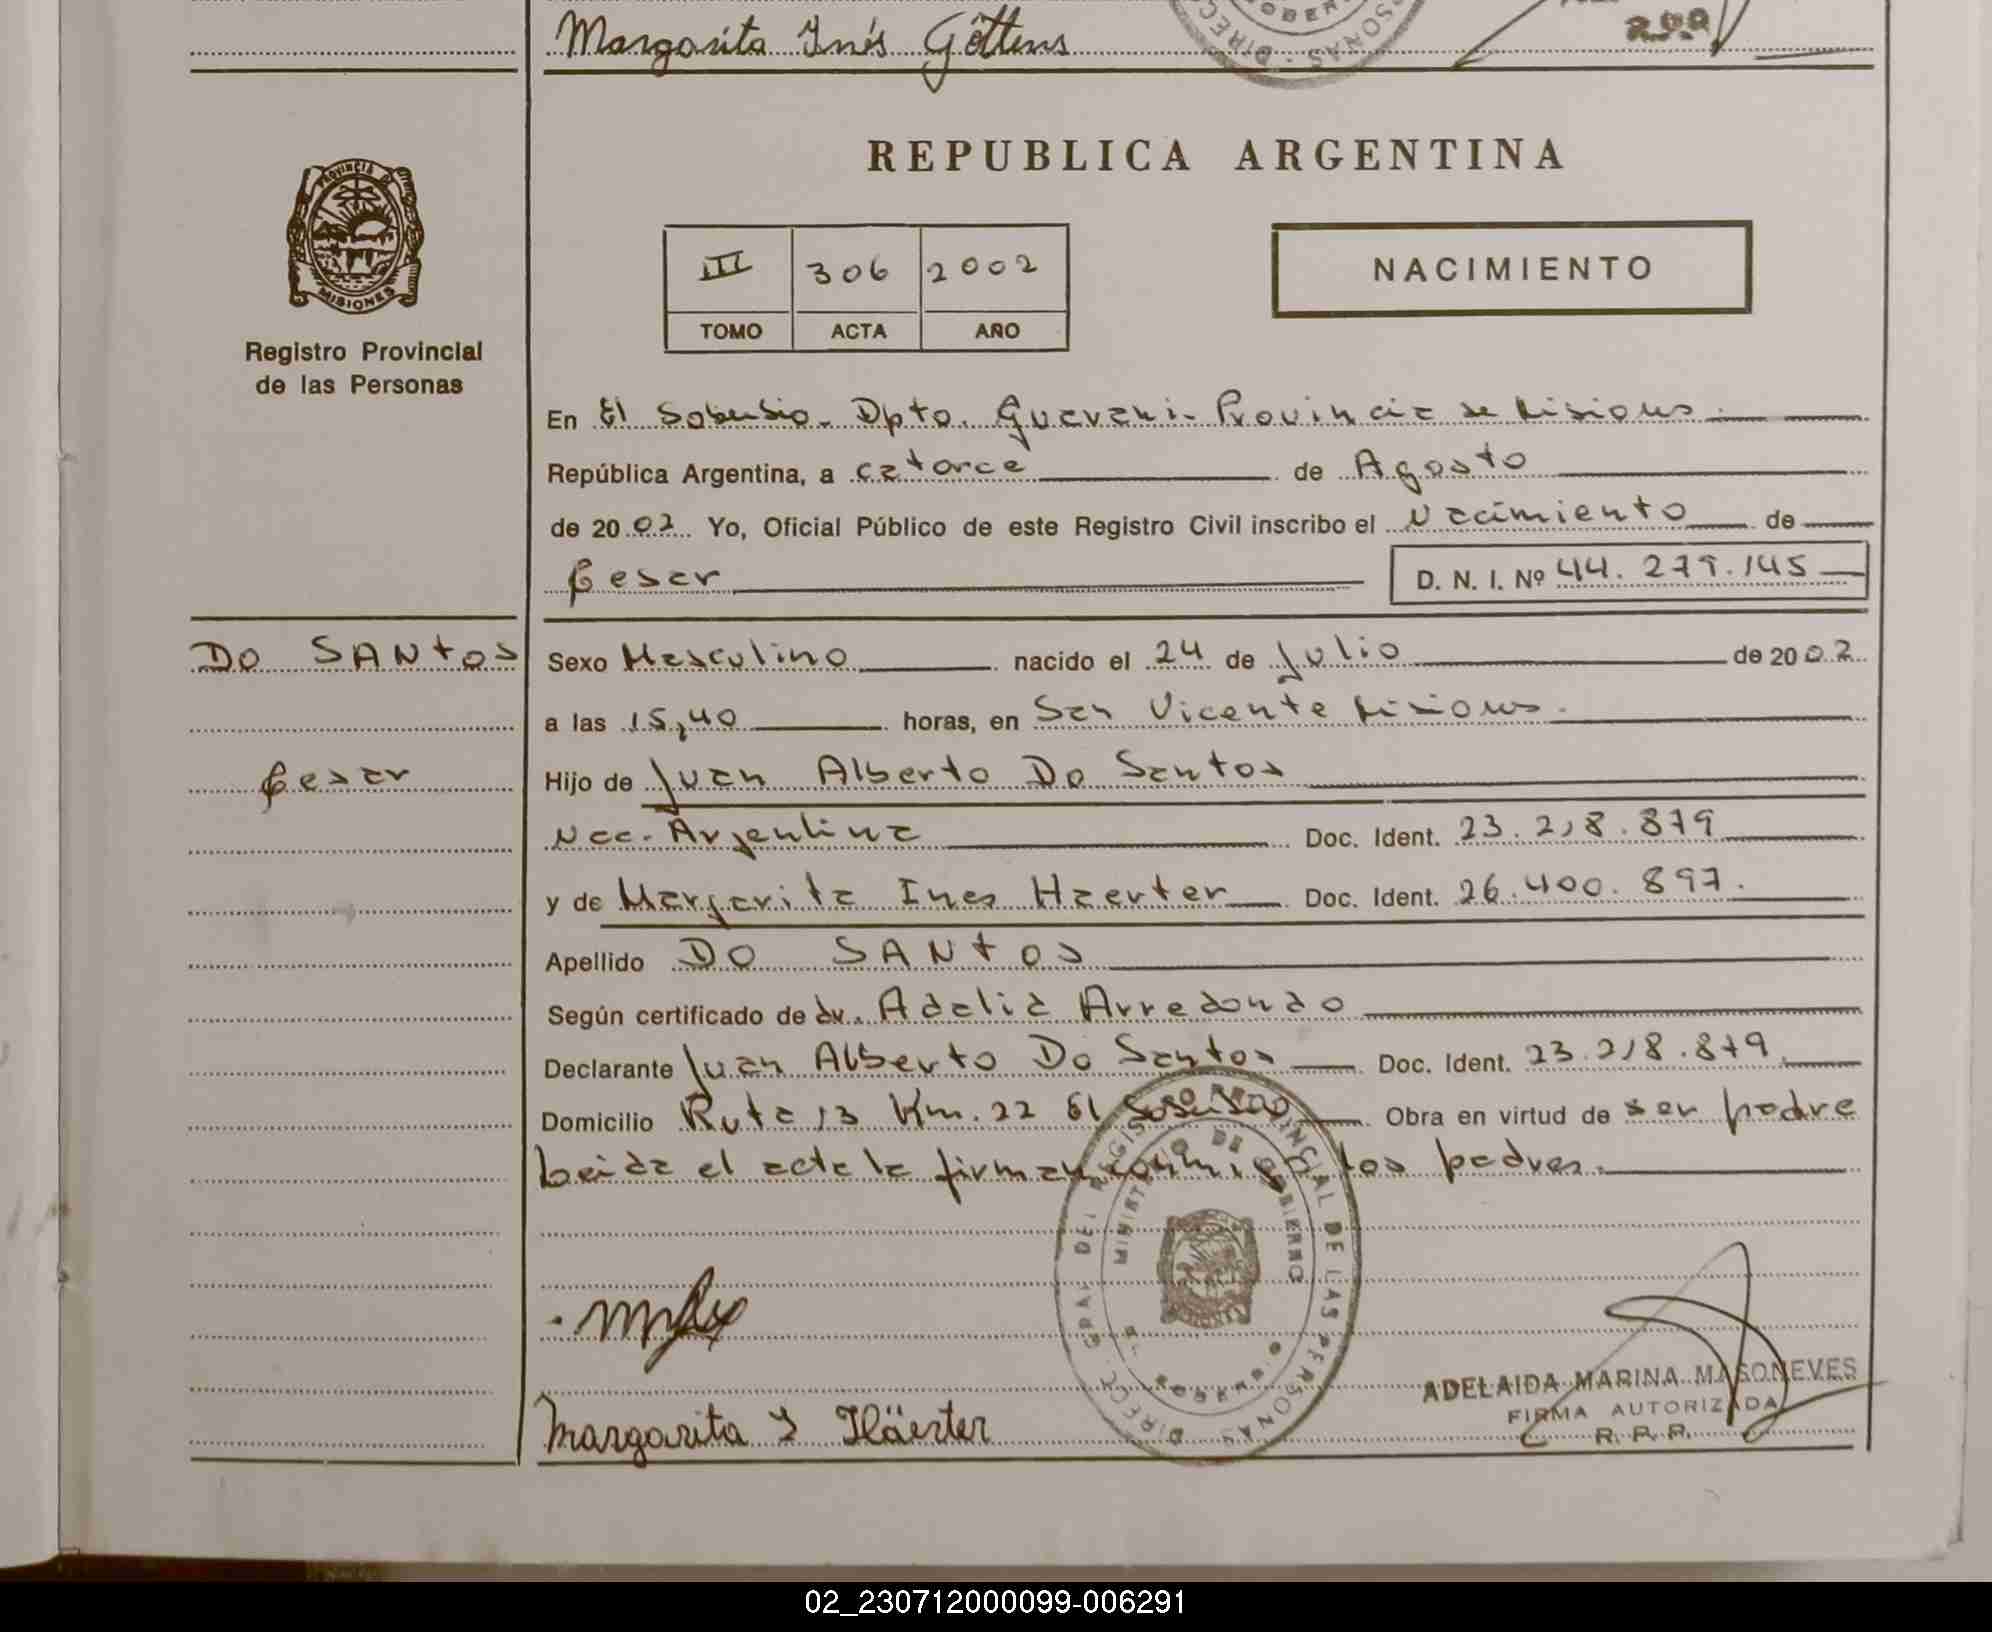 Margarita Inés Göttens
PROVINCIA DE
MISIONES
Registro Provincial
de las Personas
REPUBLICA ARGENTINA
III 306 2002
TOMO ACTA AÑO
NACIMIENTO
En El Soberbio. Dpto. Guarani. Provincia de Misiones.
República Argentina, a catorce de Agosto
de 20 02 Yo, Oficial Público de este Registro Civil inscribo el Nacimiento de
Cesar D. N. I. Nº 44.279.145
DO SANtOS Sexo Masculino nacido el 24 de Julio de 20 02
a las 15,40 horas, en San Vicente Misiones.
Cesar Hijo de Juan Alberto Do Santos
Nac. Argentina Doc. Ident. 23.218.879
y de Margarita Ines Haerter Doc. Ident. 26.400.897.
Apellido DO SANtOS
Según certificado de dr. Adalid Arredondo
Declarante Juan Alberto Do Santos Doc. Ident. 23.218.879
Domicilio Ruta 13 Km. 22 El Soberbio Obra en virtud de ser padre
Leida el acta la firman conmigo los padres.
DIRECC. GRAL DEL REGISTRO PROVINCIAL DE LAS PERSONAS
MINISTERIO DE GOBIERNO
EL SOBERBIO
ADELAIDA MARINA MASONEVES
FIRMA AUTORIZADA
R. P. P.
Margarita I Häerter
02_230712000099-006291